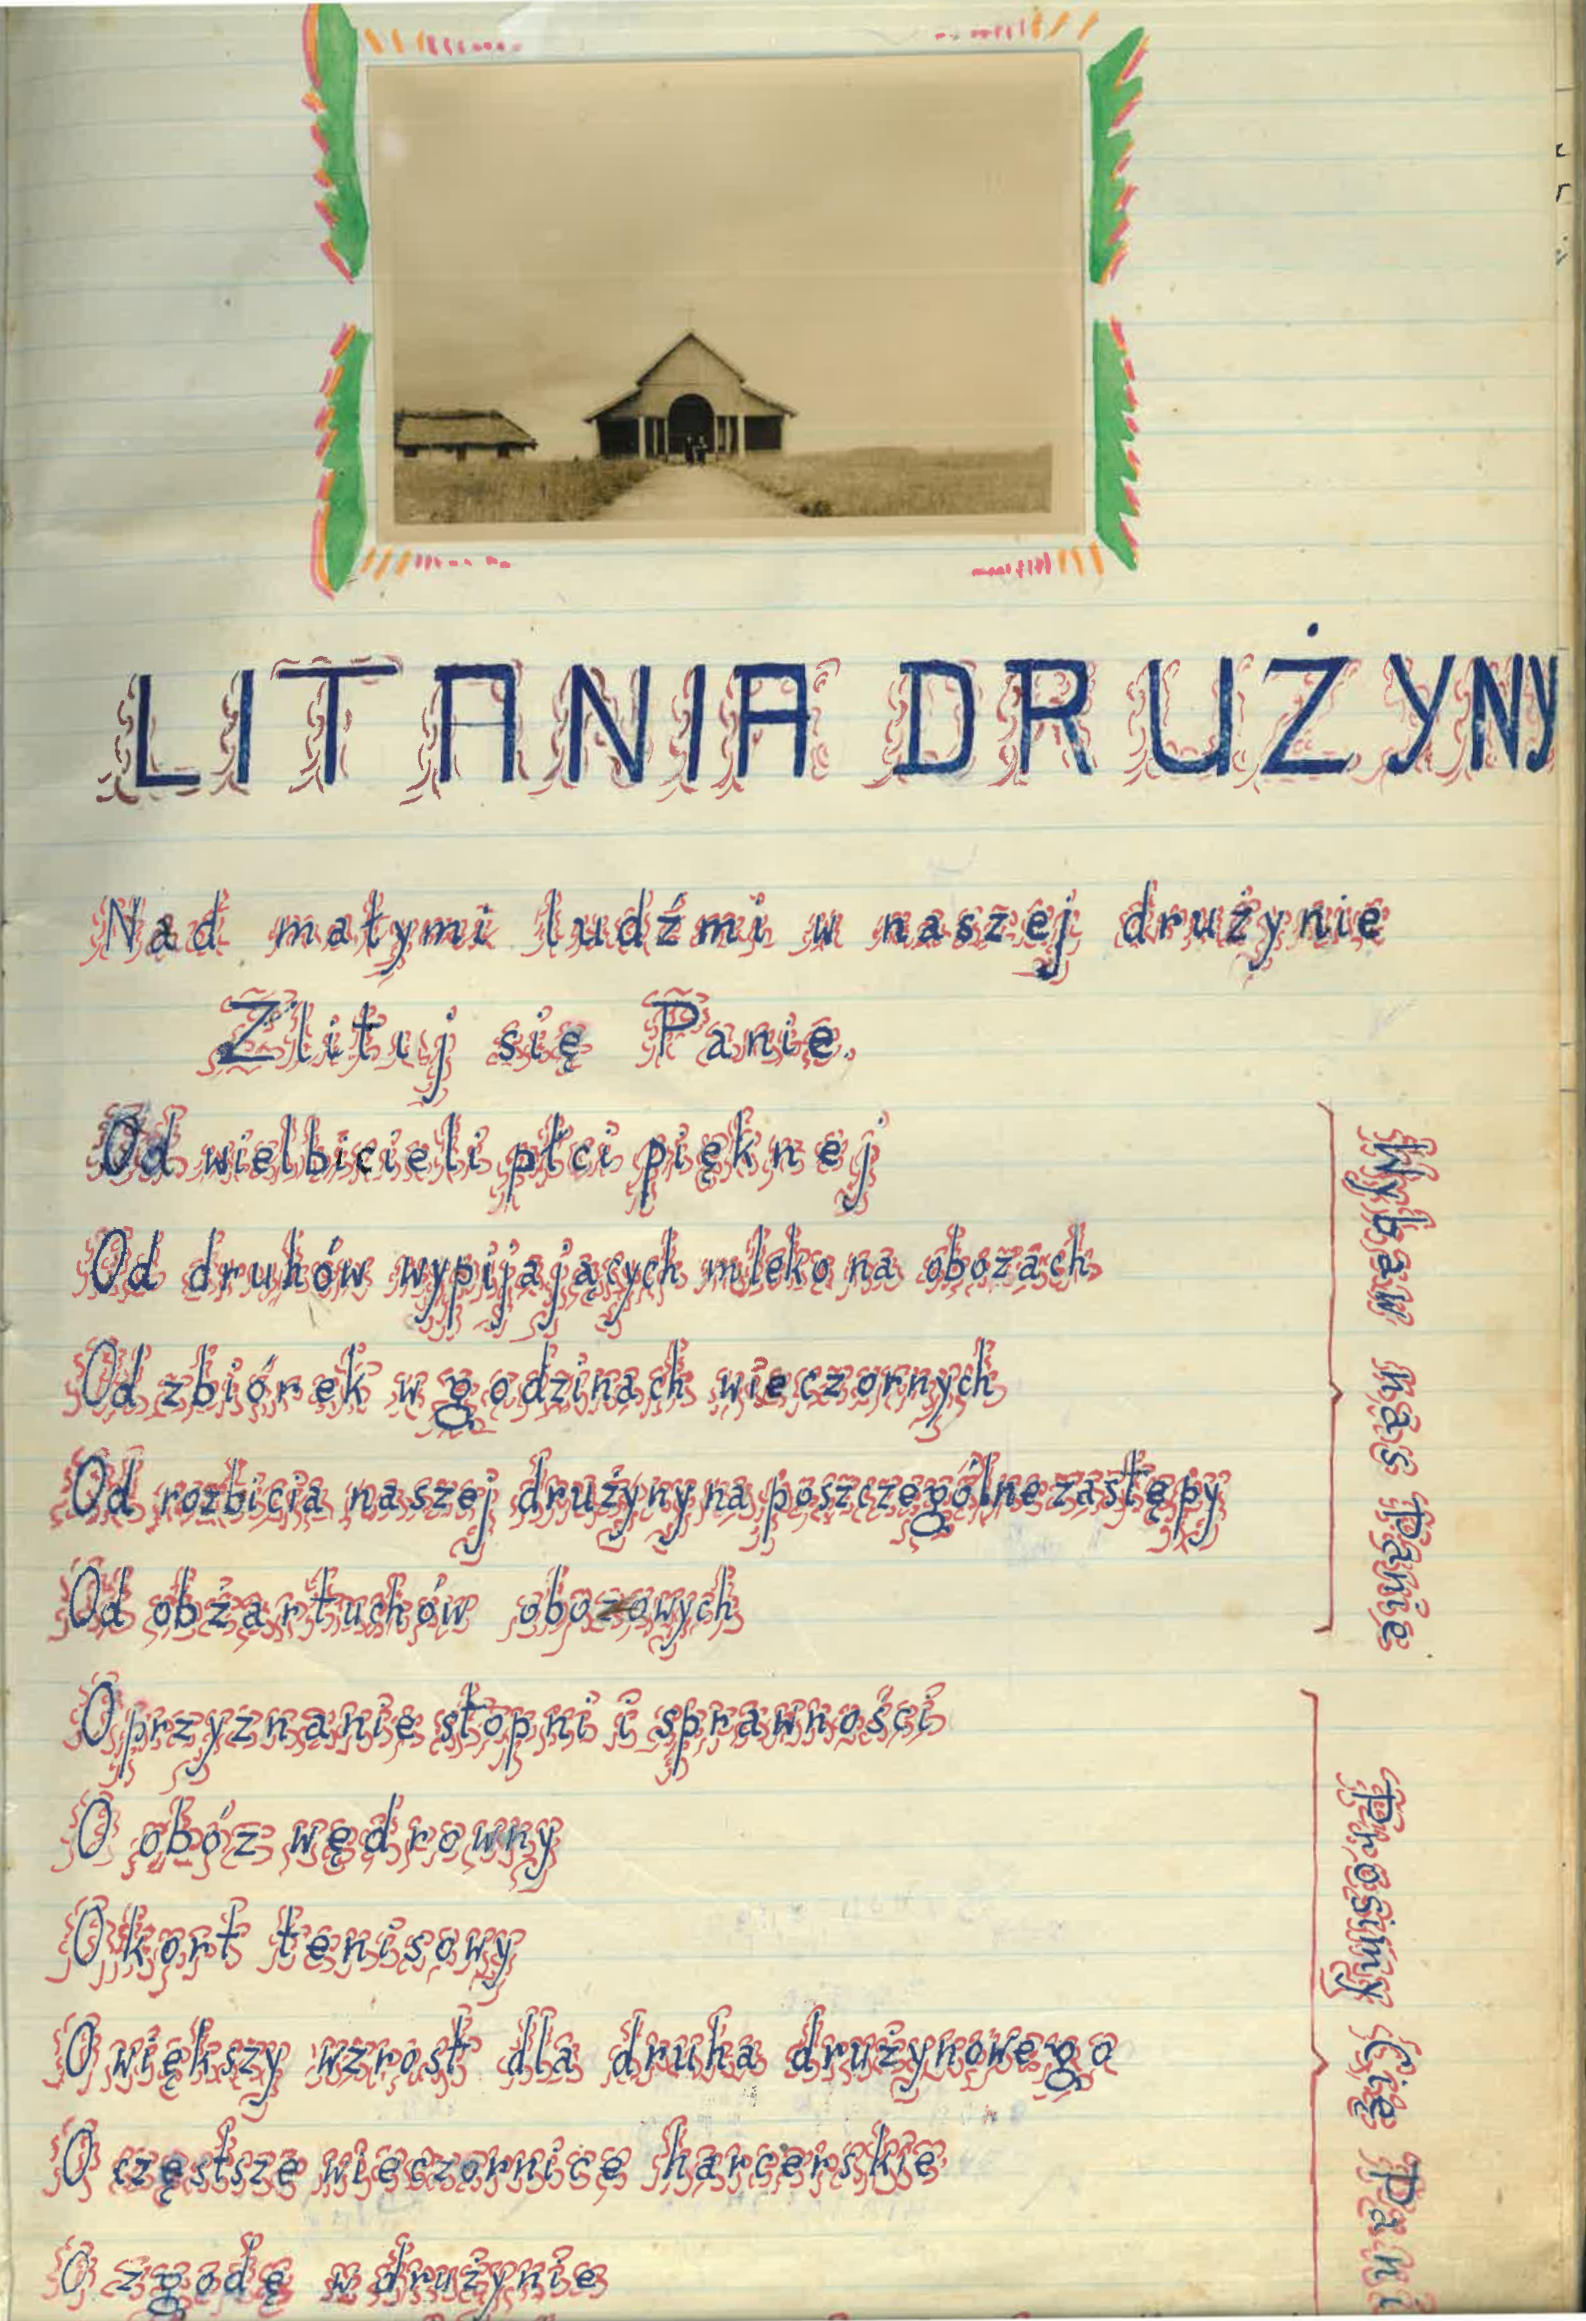 LITANIA DRUŻYNY
Nad małymi ludźmi w naszej drużynie
Zlituj się Panie.
Od wielbicieli płci pięknej
Od druhów wypijających mleko na obozach
Od zbiórek w godzinach wieczornych
Od rozbicia naszej drużyny na poszczególne zastępy
Od obżartuchów obozowych
Wybaw nas Panie
O przyznanie stopni i sprawności
O obóz wędrowny
O kort tenisowy
O większy wzrost dla druha drużynowego
O częstsze wieczornice harcerskie
O zgodę w drużynie
Prosimy Cię Pani